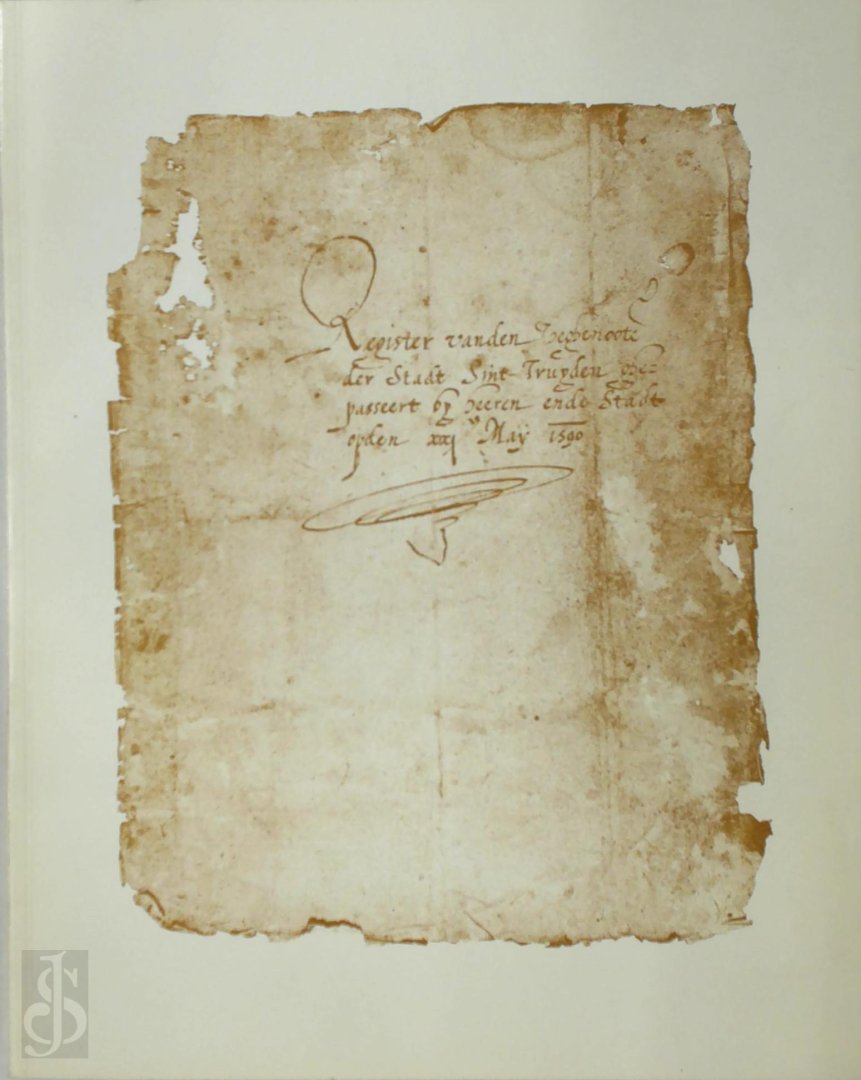 Register vanden
der Stadt Sint-Truyden ghe=
passeert by heeren ende Stadt
opden xxj May 1590
JS